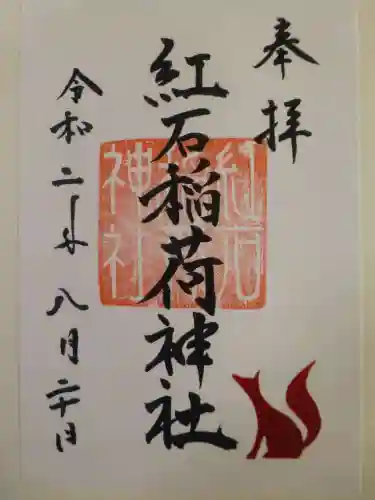 奉拝
紅石稲荷神社
令和二年八月二十日
紅石稲荷神社